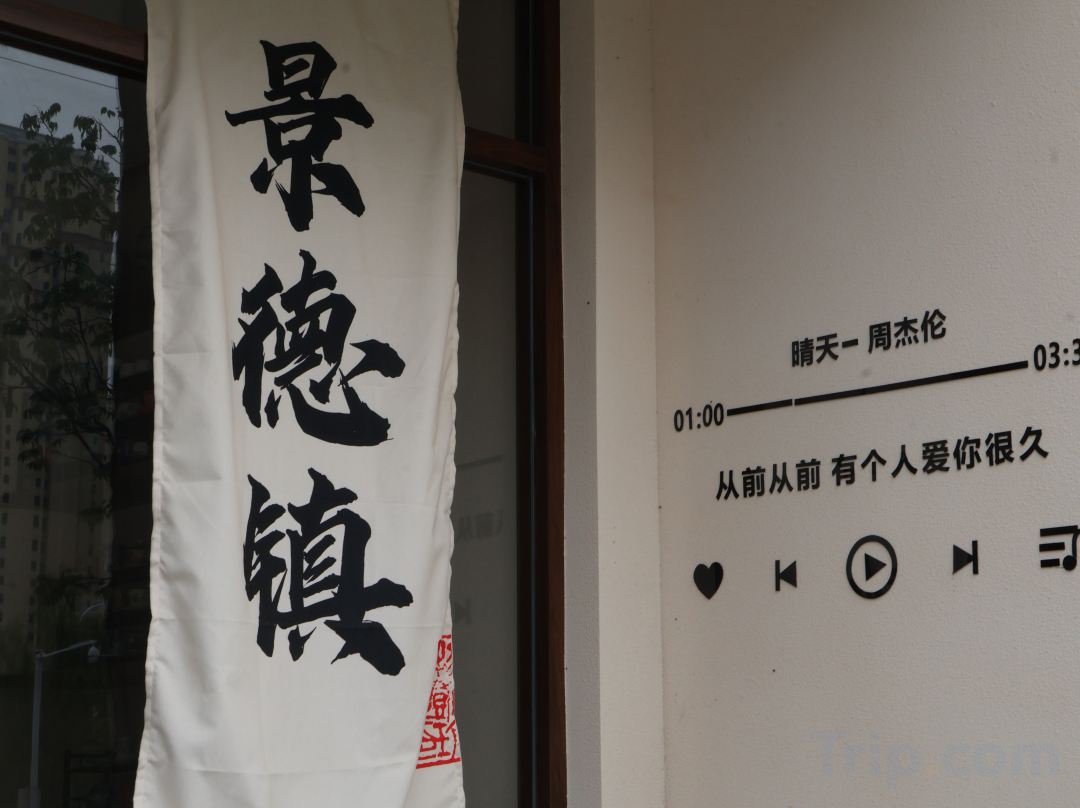 景德镇
晴天- 周杰伦
01:00
03:3
从前从前 有个人爱你很久
Trip.com